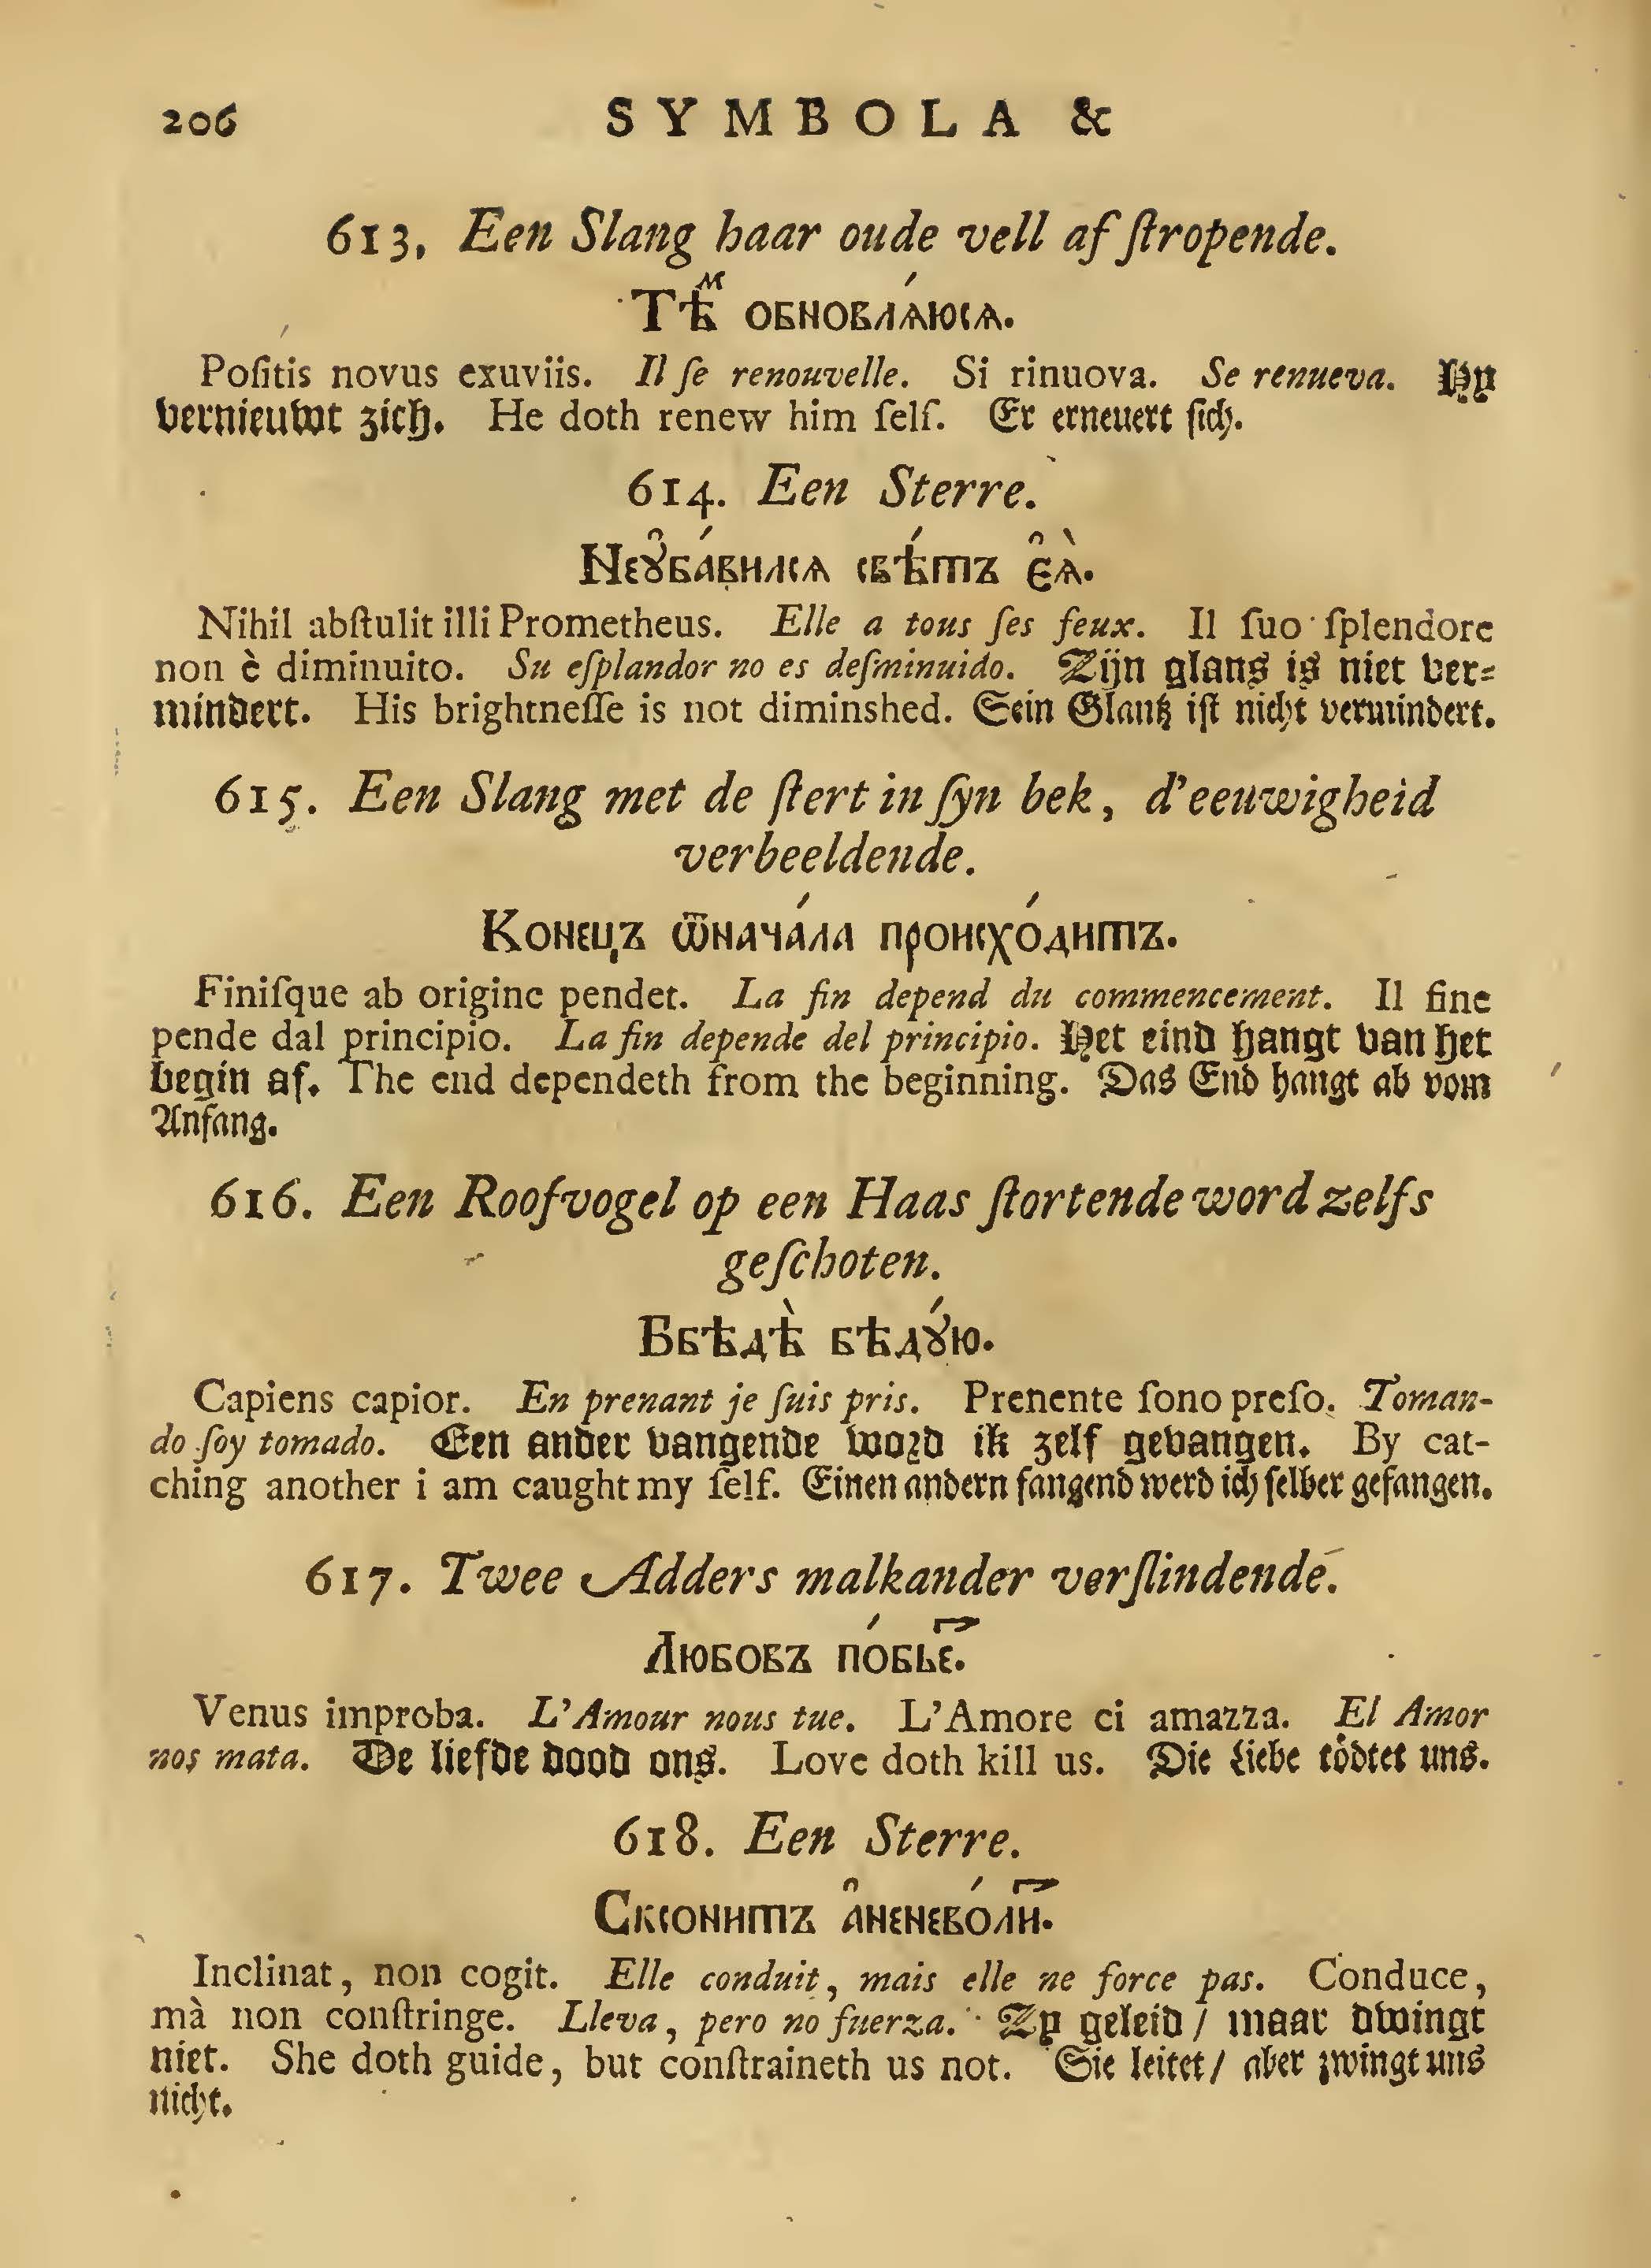 206 SYMBOLA &
613, Een Slang haar oude vell af ſtropende.
Тѣⷨ обновлѧ́юсѧ.
Poſitis novus exuviis. Il ſe renouvelle. Si rinuova. Se renueva. Hy
vernieuwt zich. He doth renew him ſelf. Er erneuert ſich.
614. Een Sterre.
Неꙋ҆ба́вилсѧ свѣ́тъ є҆ѧ̀.
Nihil abſtulit illi Prometheus. Elle a tous ſes feux. Il ſuo ſplendore
non è diminuito. Su eſplandor no es deſminuido. Zijn glans is niet ver-
mindert. His brightneſſe is not diminshed. Sein Glantz iſt nicht vermindert.
615. Een Slang met de ſtert in ſyn bek, d'eeuwigheid
verbeeldende.
Конецъ ѿнача́ла происхо́дитъ.
Finiſque ab origine pendet. La fin depend du commencement. Il fine
pende dal principio. La fin depende del principio. Het eind hangt van het
begin af. The end dependeth from the beginning. Das End hangt ab vom
Anfang.
616. Een Roofvogel op een Haas ſtortende word zelfs
geſchoten.
Вбѣдѣ̀ бѣдꙋ́ю.
Capiens capior. En prenant je ſuis pris. Prenente ſono preſo. Toman-
do ſoy tomado. Een ander vangende word ik zelf gevangen. By cat-
ching another i am caught my ſelf. Einen andern fangend werd ich ſelber gefangen.
617. Twee Adders malkander verſlindende.
Любовъ по́бье.
Venus improba. L'Amour nous tue. L'Amore ci amazza. El Amor
nos mata. De liefde dood ons. Love doth kill us. Die Liebe tödtet uns.
618. Een Sterre.
Сксонитъ а҆ненево́ли.
Inclinat, non cogit. Elle conduit, mais elle ne force pas. Conduce,
mà non conſtringe. Lleva, pero no fuerza. Zy geleid / maar dwingt
niet. She doth guide, but conſtraineth us not. Sie leitet / aber zwingt uns
nicht.